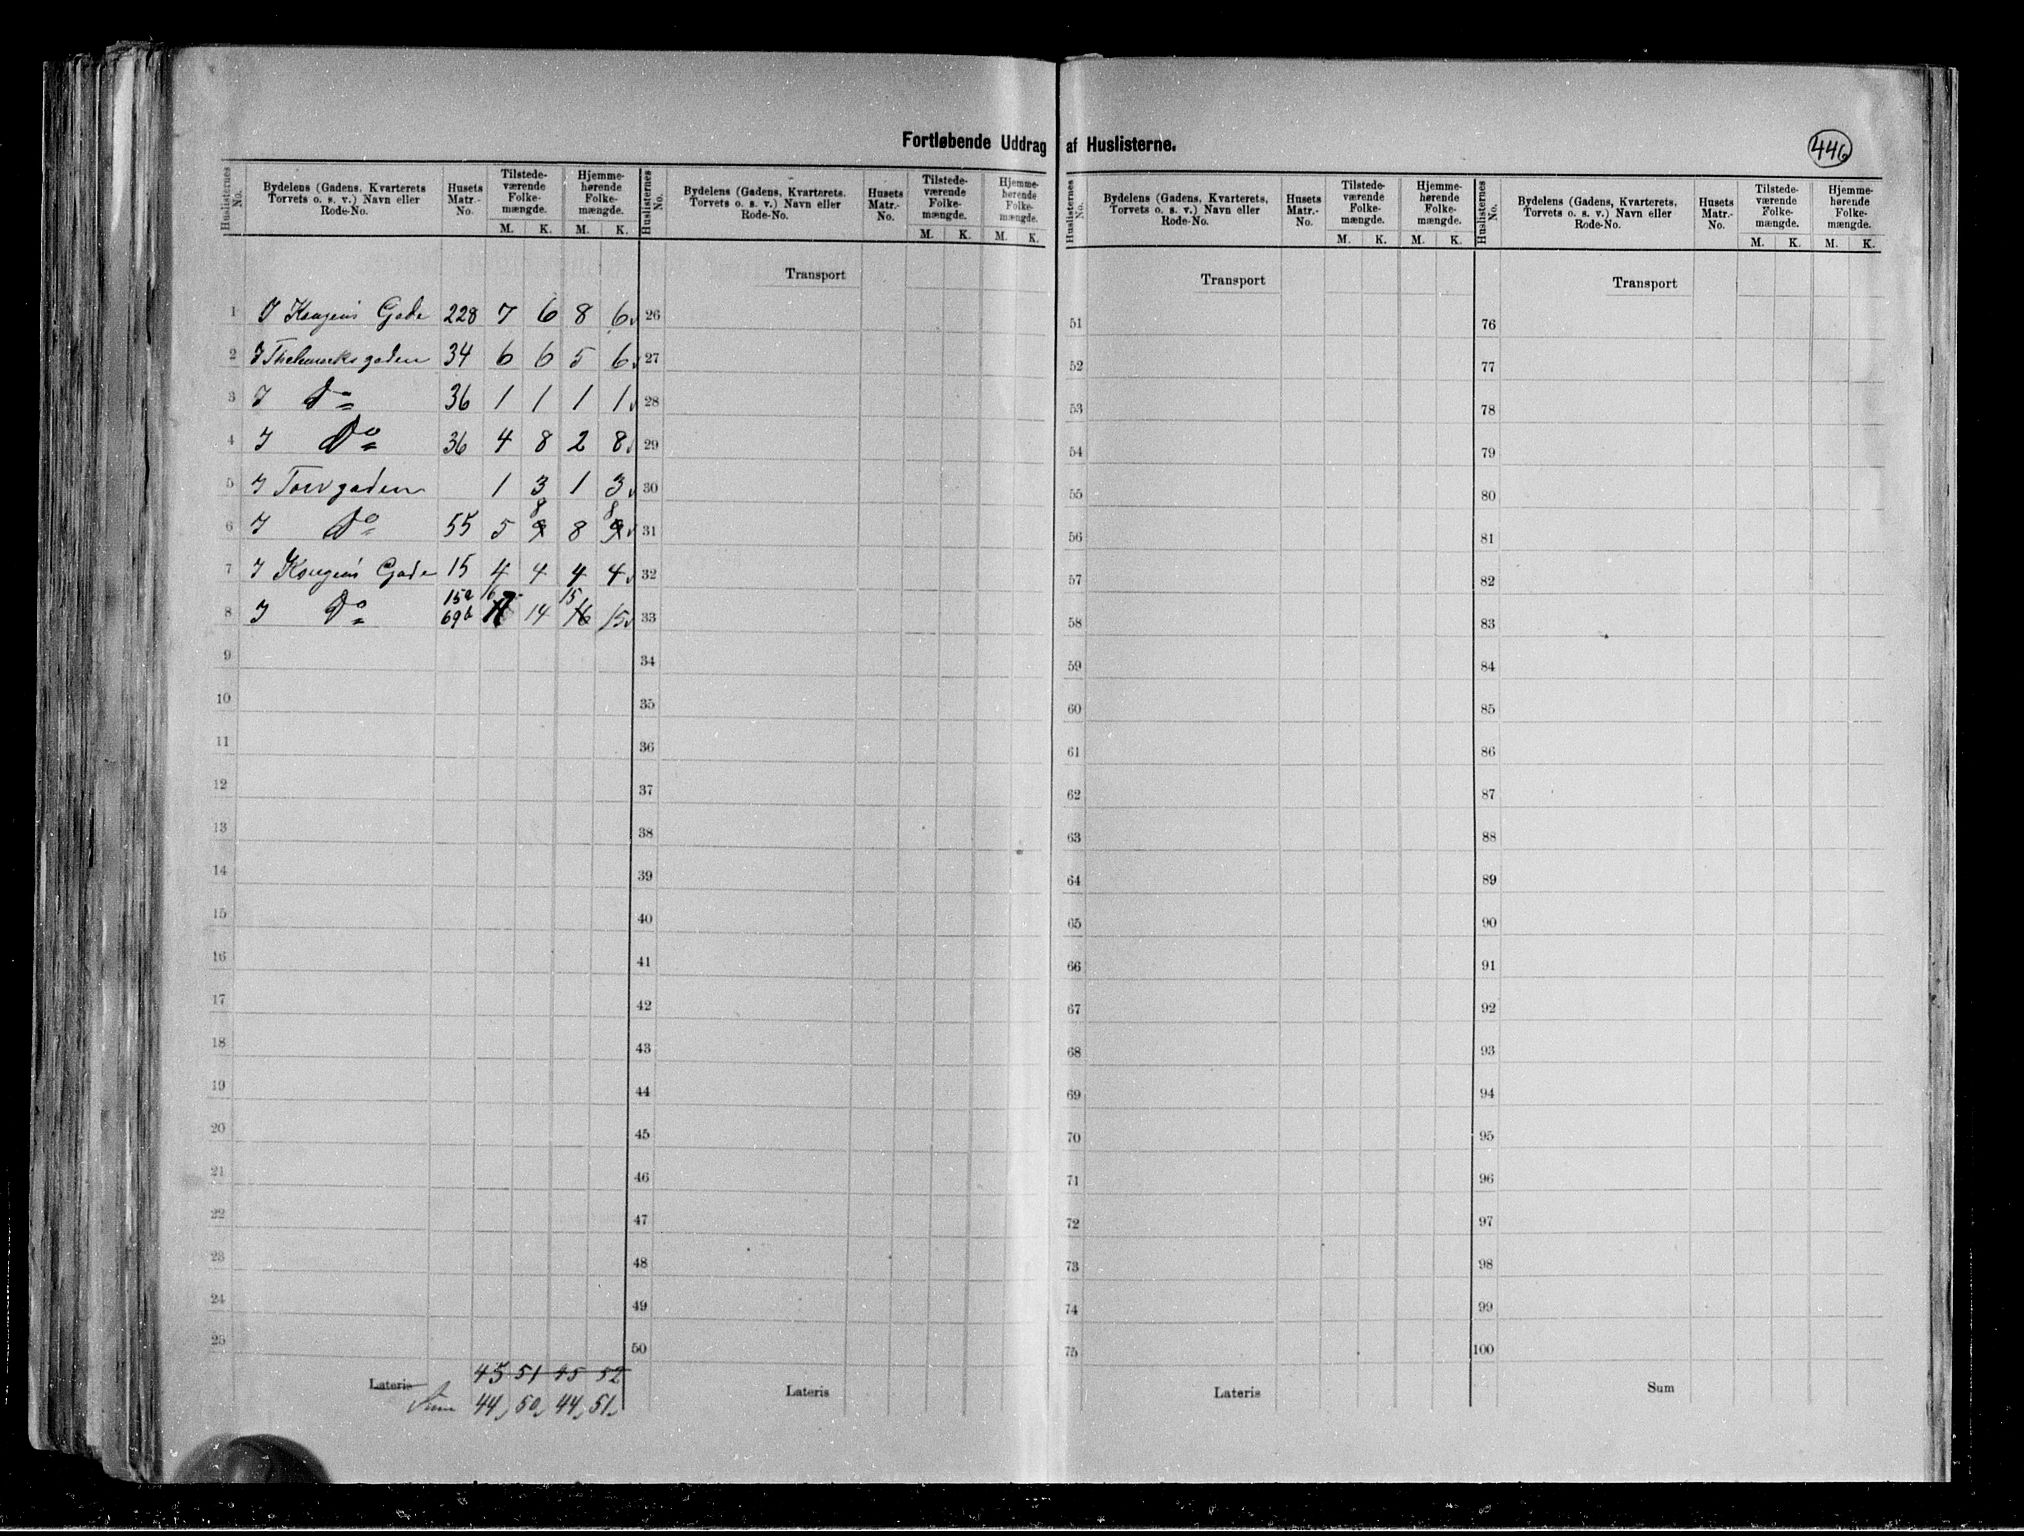 Fortløbende Uddrag af Huslisterne.
446
Huslisternes No. | Bydelens (Gadens, Kvarterets Torvets o. s. v.) Navn eller Rode-No. | Husets Matr.-No. | Tilstede-værende Folke-mængde. M. K. | Hjemme-hørende Folke-mængde. M. K.
1 I Kongens Gade 228 7 6 8 6
2 I Thelemarksgaden 34 6 6 5 6
3 I Do 36 1 1 1 1
4 I Do 36 4 8 2 8
5 I Torvgaden 1 3 1 3
6 I Do 55 5 9 8 8 9 8
7 I Kongens Gade 15 4 4 4 4
8 I Do 15a 69b 17 16 14 16 15 15
9
10
11
12
13
14
15
16
17
18
19
20
21
22
23
24
25
Lateris 45 51 45 52
Sum 44 50 44 51
Huslisternes No. | Bydelens (Gadens, Kvarterets, Torvets o. s. v.) Navn eller Rode-No. | Husets Matr.-No. | Tilstede-værende Folke-mængde. M. K. | Hjemme-hørende Folke-mængde. M. K.
Transport
26
27
28
29
30
31
32
33
34
35
36
37
38
39
40
41
42
43
44
45
46
47
48
49
50
Lateris
Huslisternes No. | Bydelens (Gadens, Kvarterets, Torvets o. s. v.) Navn eller Rode-No. | Husets Matr.-No. | Tilstede-værende Folke-mængde. M. K. | Hjemme-hørende Folke-mængde. M. K.
Transport
51
52
53
54
55
56
57
58
59
60
61
62
63
64
65
66
67
68
69
70
71
72
73
74
75
Lateris
Huslisternes No. | Bydelens (Gadens, Kvarterets, Torvets o. s. v.) Navn eller Rode-No. | Husets Matr.-No. | Tilstede-værende Folke-mængde. M. K. | Hjemme-hørende Folke-mængde. M. K.
Transport
76
77
78
79
80
81
82
83
84
85
86
87
88
89
90
91
92
93
94
95
96
97
98
99
100
Sum